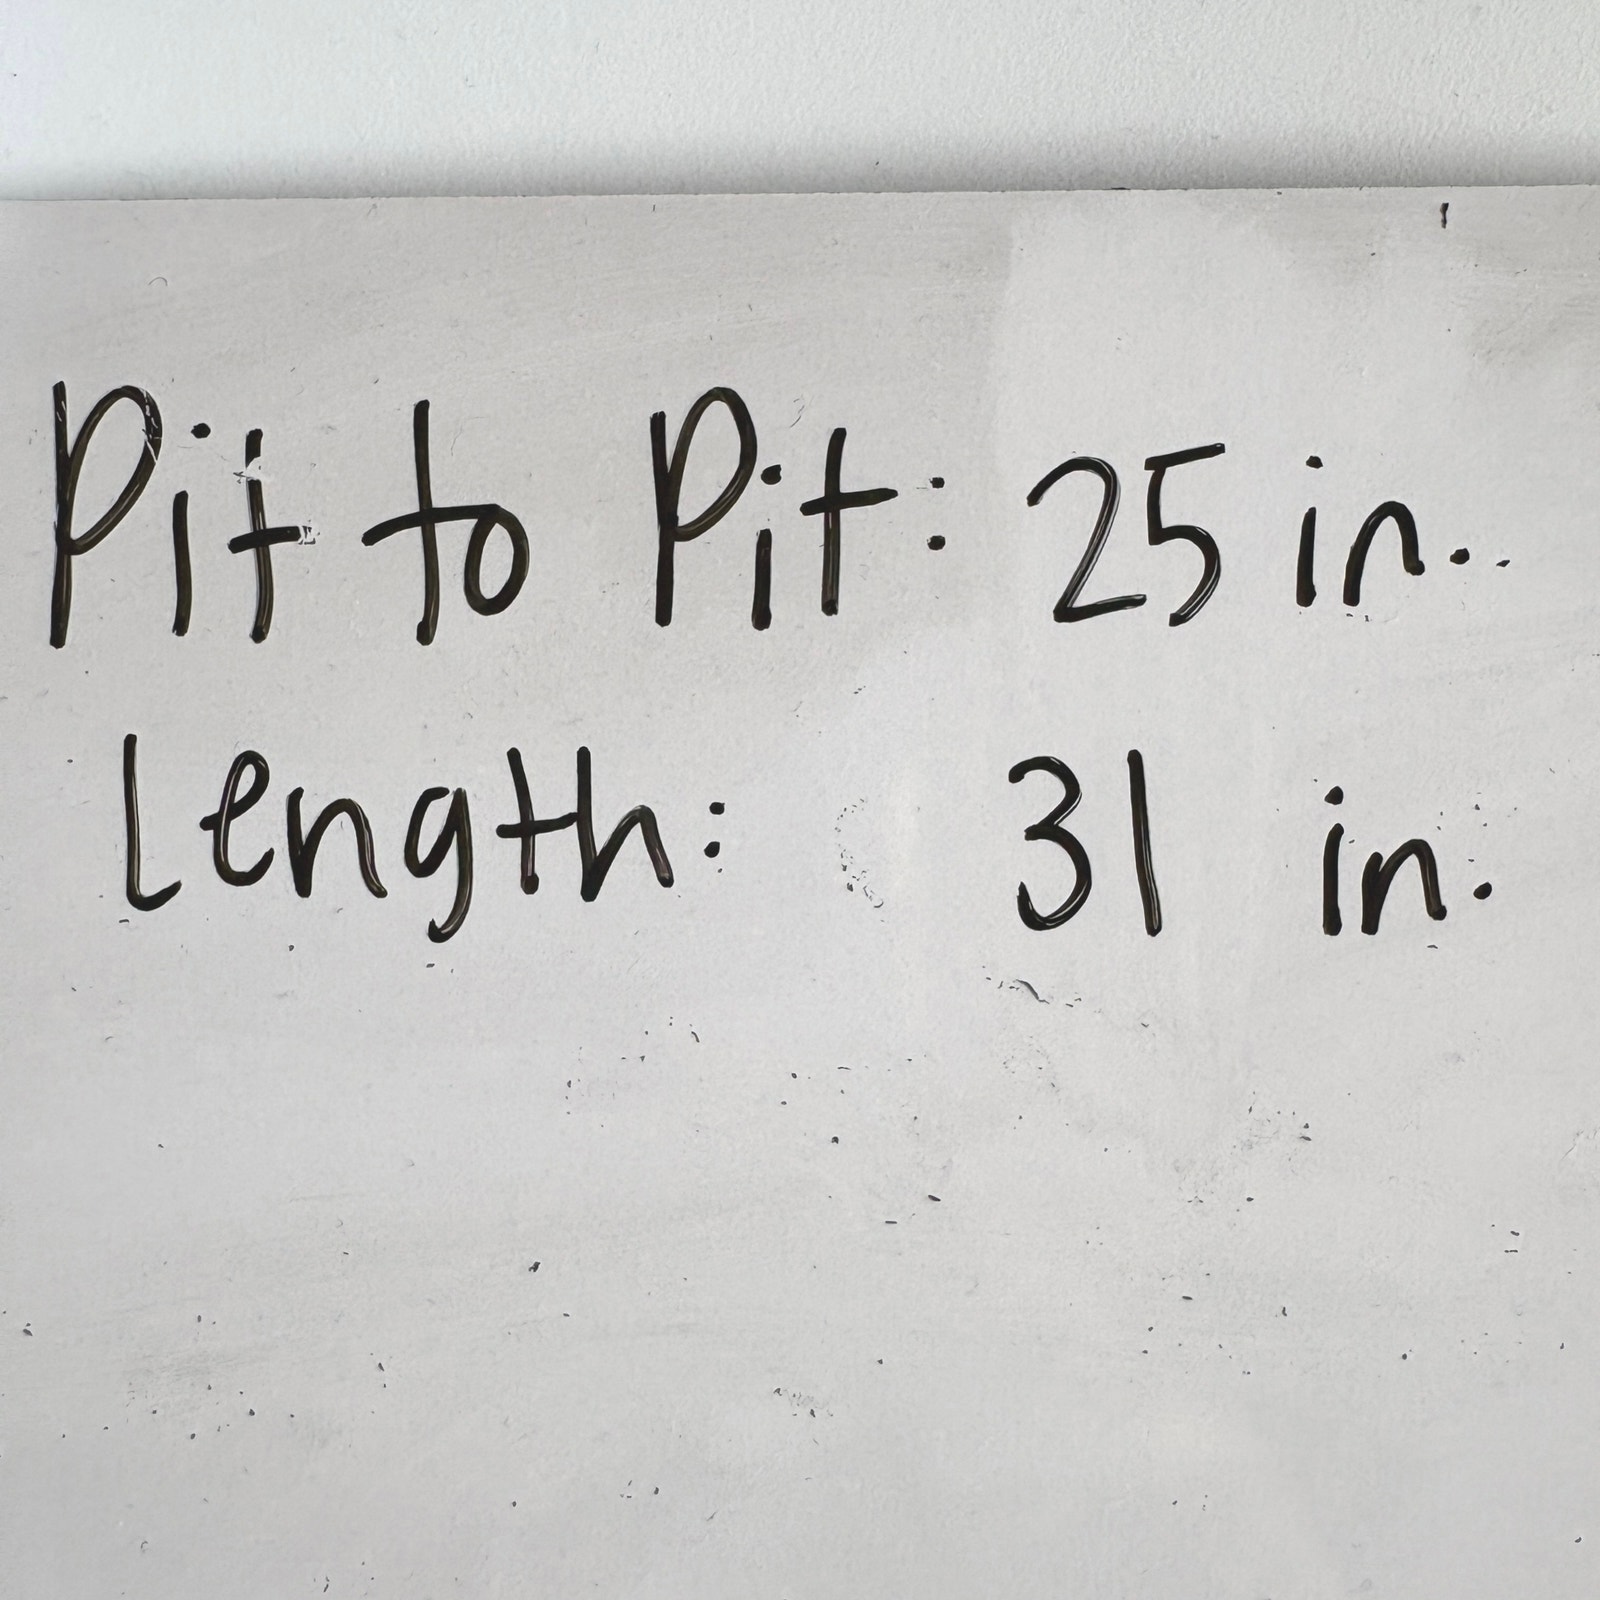 Pit to Pit: 25 in.
Length: 31 in.